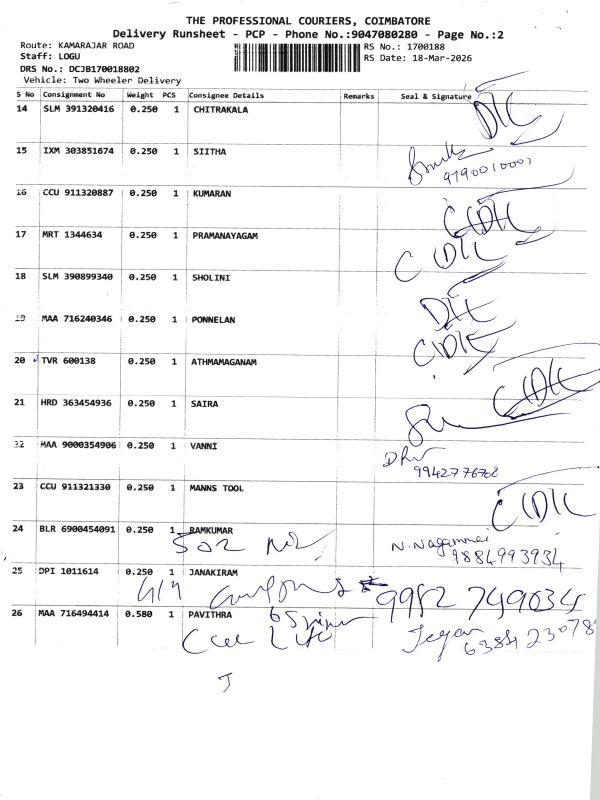 THE PROFESSIONAL COURIERS, COIMBATORE
Delivery Runsheet - PCP - Phone No.:9047080280 - Page No.:2
Route: KAMARAJAR ROAD RS No.: 1700188
Staff: LOGU RS Date: 18-Mar-2026
DRS No.: DCJB170018802
Vehicle: Two Wheeler Delivery
S No Consignment No Weight PCS Consignee Details Remarks Seal & Signature
14 SLM 391320416 0.250 1 CHITRAKALA
15 IXM 303851674 0.250 1 SIITHA
9790010001
16 CCU 911320887 0.250 1 KUMARAN
17 MRT 1344634 0.250 1 PRAMANAYAGAM
18 SLM 390899340 0.250 1 SHOLINI
19 MAA 716240346 0.250 1 PONNELAN
20 TVR 600138 0.250 1 ATHMAMAGANAM
21 HRD 363454936 0.250 1 SAIRA
22 MAA 9000354906 0.250 1 VANNI
9942776768
23 CCU 911321330 0.250 1 MANNS TOOL
24 BLR 6900454091 0.250 1 RAMKUMAR
502 N. Nagammai
9884993934
25 DPI 1011614 0.250 1 JANAKIRAM
9982 749034
26 MAA 716494414 0.580 1 PAVITHRA
Jegan
638423078
J